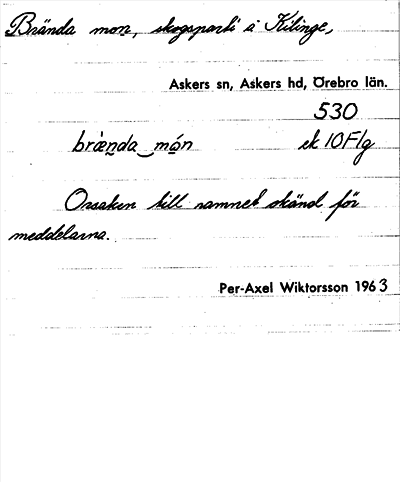 Brända mon, skogsparti å Kilinge,
Askers sn, Askers hd, Örebro län.
530
brä̀nda món ek 10F/g
Orsaken till namnet okänd för
meddelarna.
Per-Axel Wiktorsson 1963